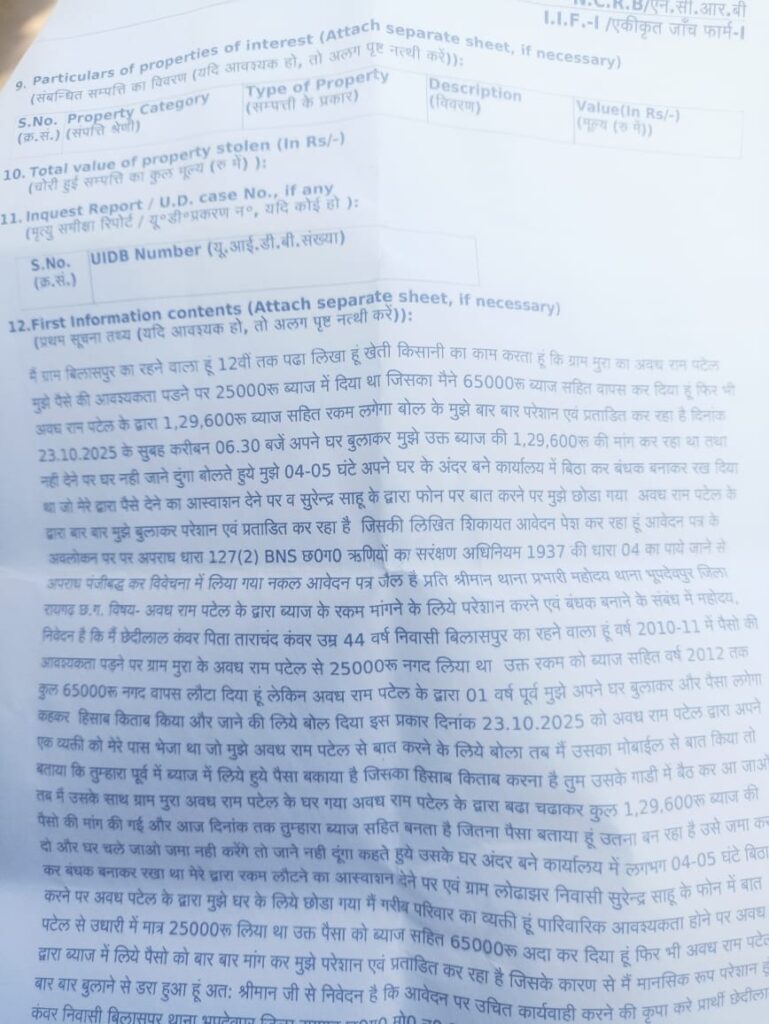 N.C.R.B/एन.सी.आर.बी
I.I.F.-I /एकीकृत जाँच फार्म-I
9. Particulars of properties of interest (Attach separate sheet, if necessary)
(संबन्धित सम्पत्ति का विवरण (यदि आवश्यक हो, तो अलग पृष्ट नत्थी करें)):
S.No. Property Category Type of Property Description Value(In Rs/-)
(क्र.सं.) (संपत्ति श्रेणी) (सम्पत्ती के प्रकार) (विवरण) (मूल्य (रु में))
10. Total value of property stolen (In Rs/-)
(चोरी हुई सम्पत्ति का कुल मूल्य (रु में) ):
11. Inquest Report / U.D. case No., if any
(मृत्यु समीक्षा रिपोर्ट / यू॰डी॰प्रकरण न॰, यदि कोई हो ):
S.No. UIDB Number (यू.आई.डी.बी.संख्या)
(क्र.सं.)
12.First Information contents (Attach separate sheet, if necessary)
(प्रथम सूचना तथ्य (यदि आवश्यक हो, तो अलग पृष्ट नत्थी करें)):
मैं ग्राम बिलासपुर का रहने वाला हूं 12वीं तक पढा लिखा हूं खेती किसानी का काम करता हूं कि ग्राम मुरा का अवध राम पटेल
मुझे पैसे की आवश्यकता पडने पर 25000रू ब्याज में दिया था जिसका मैने 65000रू ब्याज सहित वापस कर दिया हूं फिर भी
अवध राम पटेल के द्वारा 1,29,600रू ब्याज सहित रकम लगेगा बोल के मुझे बार बार परेशान एवं प्रताडित कर रहा है दिनांक
23.10.2025 के सुबह करीबन 06.30 बजें अपने घर बुलाकर मुझे उक्त ब्याज की 1,29,600रू की मांग कर रहा था तथा
नही देने पर घर नही जाने दुंगा बोलते हुये मुझे 04-05 घंटे अपने घर के अंदर बने कार्यालय में बिठा कर बंधक बनाकर रख दिया
था जो मेरे द्वारा पैसे देने का आस्वाशन देने पर व सुरेन्द्र साहू के द्वारा फोन पर बात करने पर मुझे छोडा गया अवध राम पटेल के
द्वारा बार बार मुझे बुलाकर परेशान एवं प्रताडित कर रहा है जिसकी लिखित शिकायत आवेदन पेश कर रहा हूं आवेदन पत्र के
अवलोकन पर पर अपराध धारा 127(2) BNS छ0ग0 ऋणियों का सरंक्षण अधिनियम 1937 की धारा 04 का पाये जाने से
अपराध पंजीबद्ध कर विवेचना में लिया गया नकल आवेदन पत्र जैल है प्रति श्रीमान थाना प्रभारी महोदय थाना भूपदेवपुर जिला
रायगढ़ छ.ग. विषय- अवध राम पटेल के द्वारा ब्याज के रकम मांगने के लिये परेशान करने एवं बंधक बनाने के संबंध में महोदय,
निवेदन है कि मैं छेदीलाल कंवर पिता ताराचंद कंवर उम्र 44 वर्ष निवासी बिलासपुर का रहने वाला हूं वर्ष 2010-11 में पैसो की
आवश्यकता पड़ने पर ग्राम मुरा के अवध राम पटेल से 25000रू नगद लिया था उक्त रकम को ब्याज सहित वर्ष 2012 तक
कुल 65000रू नगद वापस लौटा दिया हूं लेकिन अवध राम पटेल के द्वारा 01 वर्ष पूर्व मुझे अपने घर बुलाकर और पैसा लगेगा
कहकर हिसाब किताब किया और जाने की लिये बोल दिया इस प्रकार दिनांक 23.10.2025 को अवध राम पटेल द्वारा अपने
एक व्यक्ती को मेरे पास भेजा था जो मुझे अवध राम पटेल से बात करने के लिये बोला तब मैं उसका मोबाईल से बात किया तो
बताया कि तुम्हारा पूर्व में ब्याज में लिये हुये पैसा बकाया है जिसका हिसाब किताब करना है तुम उसके गाडी में बैठ कर आ जाओ
तब मैं उसके साथ ग्राम मुरा अवध राम पटेल के घर गया अवध राम पटेल के द्वारा बढा चढाकर कुल 1,29,600रू ब्याज की
पैसो की मांग की गई और आज दिनांक तक तुम्हारा ब्याज सहित बनता है जितना पैसा बताया हूं उतना बन रहा है उसे जमा कर
दो और घर चले जाओ जमा नही करेंगे तो जाने नही दूंगा कहते हुये उसके घर अंदर बने कार्यालय में लगभग 04-05 घंटे बिठा
कर बंधक बनाकर रखा था मेरे द्वारा रकम लौटने का आस्वाशन देने पर एवं ग्राम लोढाझर निवासी सुरेन्द्र साहू के फोन में बात
करने पर अवध पटेल के द्वारा मुझे घर के लिये छोडा गया मैं गरीब परिवार का व्यक्ती हूं पारिवारिक आवश्यकता होने पर अवध
पटेल से उधारी में मात्र 25000रू लिया था उक्त पैसा को ब्याज सहित 65000रू अदा कर दिया हूं फिर भी अवध राम पटेल
द्वारा ब्याज में लिये पैसो को बार बार मांग कर मुझे परेशान एवं प्रताडित कर रहा है जिसके कारण से मैं मानसिक रूप परेशान हूं
बार बार बुलाने से डरा हुआ हूं अत: श्रीमान जी से निवेदन है कि आवेदन पर उचित कार्यवाही करने की कृपा करे प्रार्थी छेदीला
कंवर निवासी बिलासपुर थाना भूपदेवपुर जिला